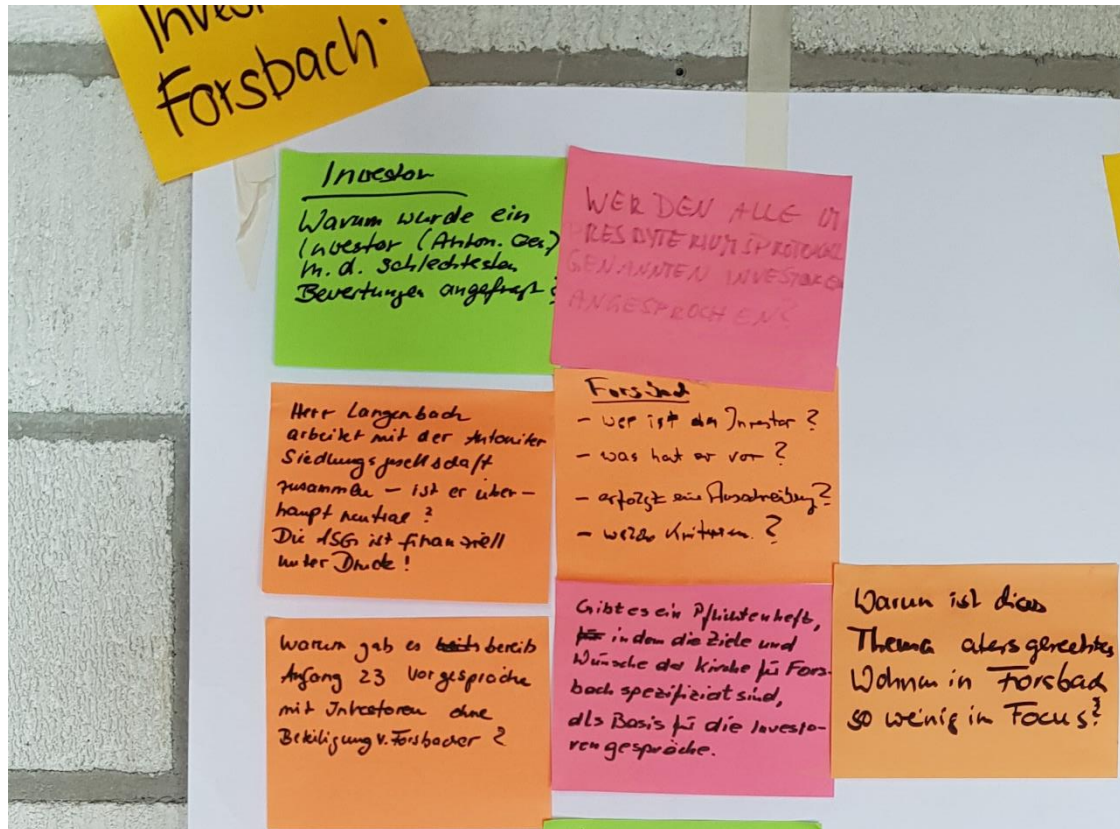 Invest
Forsbach
Investor
Warum wurde ein
Investor (Anton. Ges.)
m. d. schlechtesten
Bewertungen angefragt?
WERDEN ALLE IM
PRESBYTERIUMSPROTOKOLL
GENANNTEN INVESTOREN
ANGESPROCHEN?
Herr Langenbach
arbeitet mit der Antoniter
Siedlungsgesellschaft
zusammen – ist er über-
haupt neutral?
Die ASG ist finanziell
unter Druck!
Forsbach
- wer ist der Investor?
- was hat er vor?
- erfolgt eine Ausschreibung?
- welche Kriterien?
Warum gab es bereits
Anfang 23 Vorgespräche
mit Investoren ohne
Beteiligung v. Forsbacher?
Gibt es ein Pflichtenheft,
in dem die Ziele und
Wünsche der Kirche für Fors-
bach spezifiziert sind,
als Basis für die Investo-
rengespräche.
Warum ist dieses
Thema altersgerechtes
Wohnen in Forsbach
so weinig im Focus?